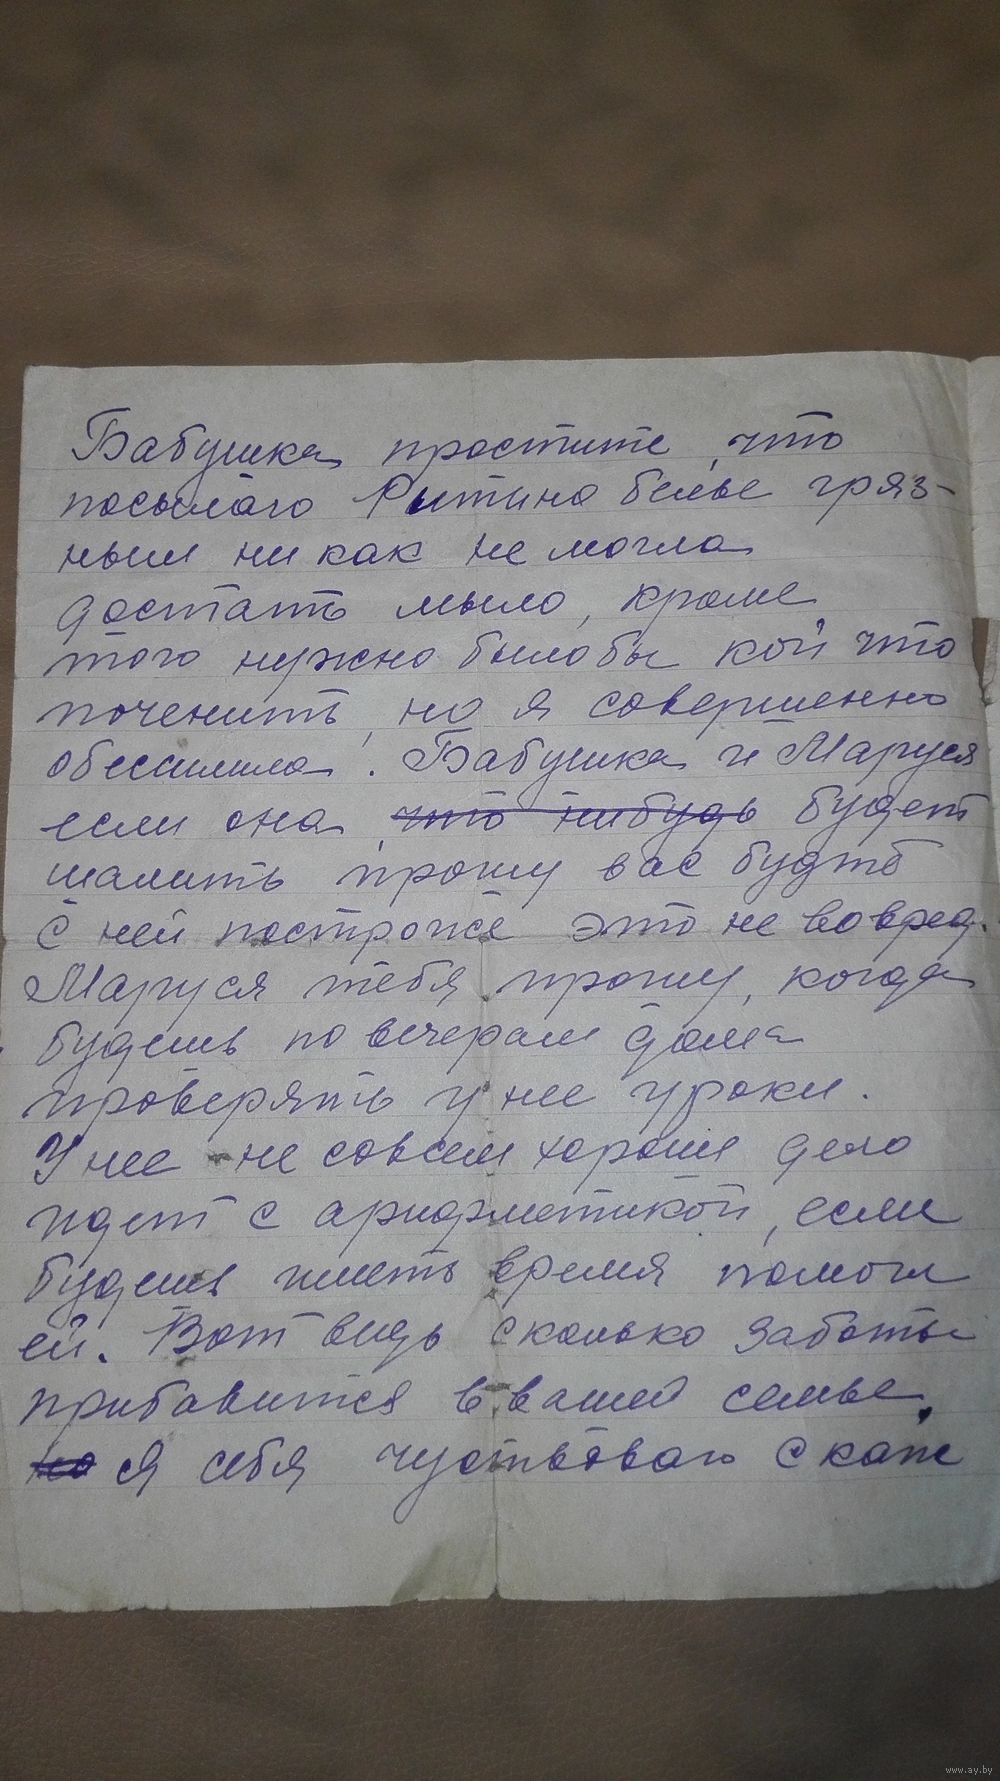 Бабушка простите, что
посылаю Ритино белье гряз-
ным ни как не могла
достать мыло, кроме
того нужно былобы кой что
починить, но я совершенно
обессилила. Бабушка и Маруся
если она что нибудь будет
шалить, прошу вас будте
с ней построже это не во вред.
Маруся тебя прошу, когда
будешь по вечерам дома
проверять у нее уроки.
У нее не совсем хорошо дело
идет с арифметикой, если
будешь иметь время помоги
ей. Вот видь сколько заботы
прибавится в вашей семье.
но я себя чуствоваю скаж
www.ay.by